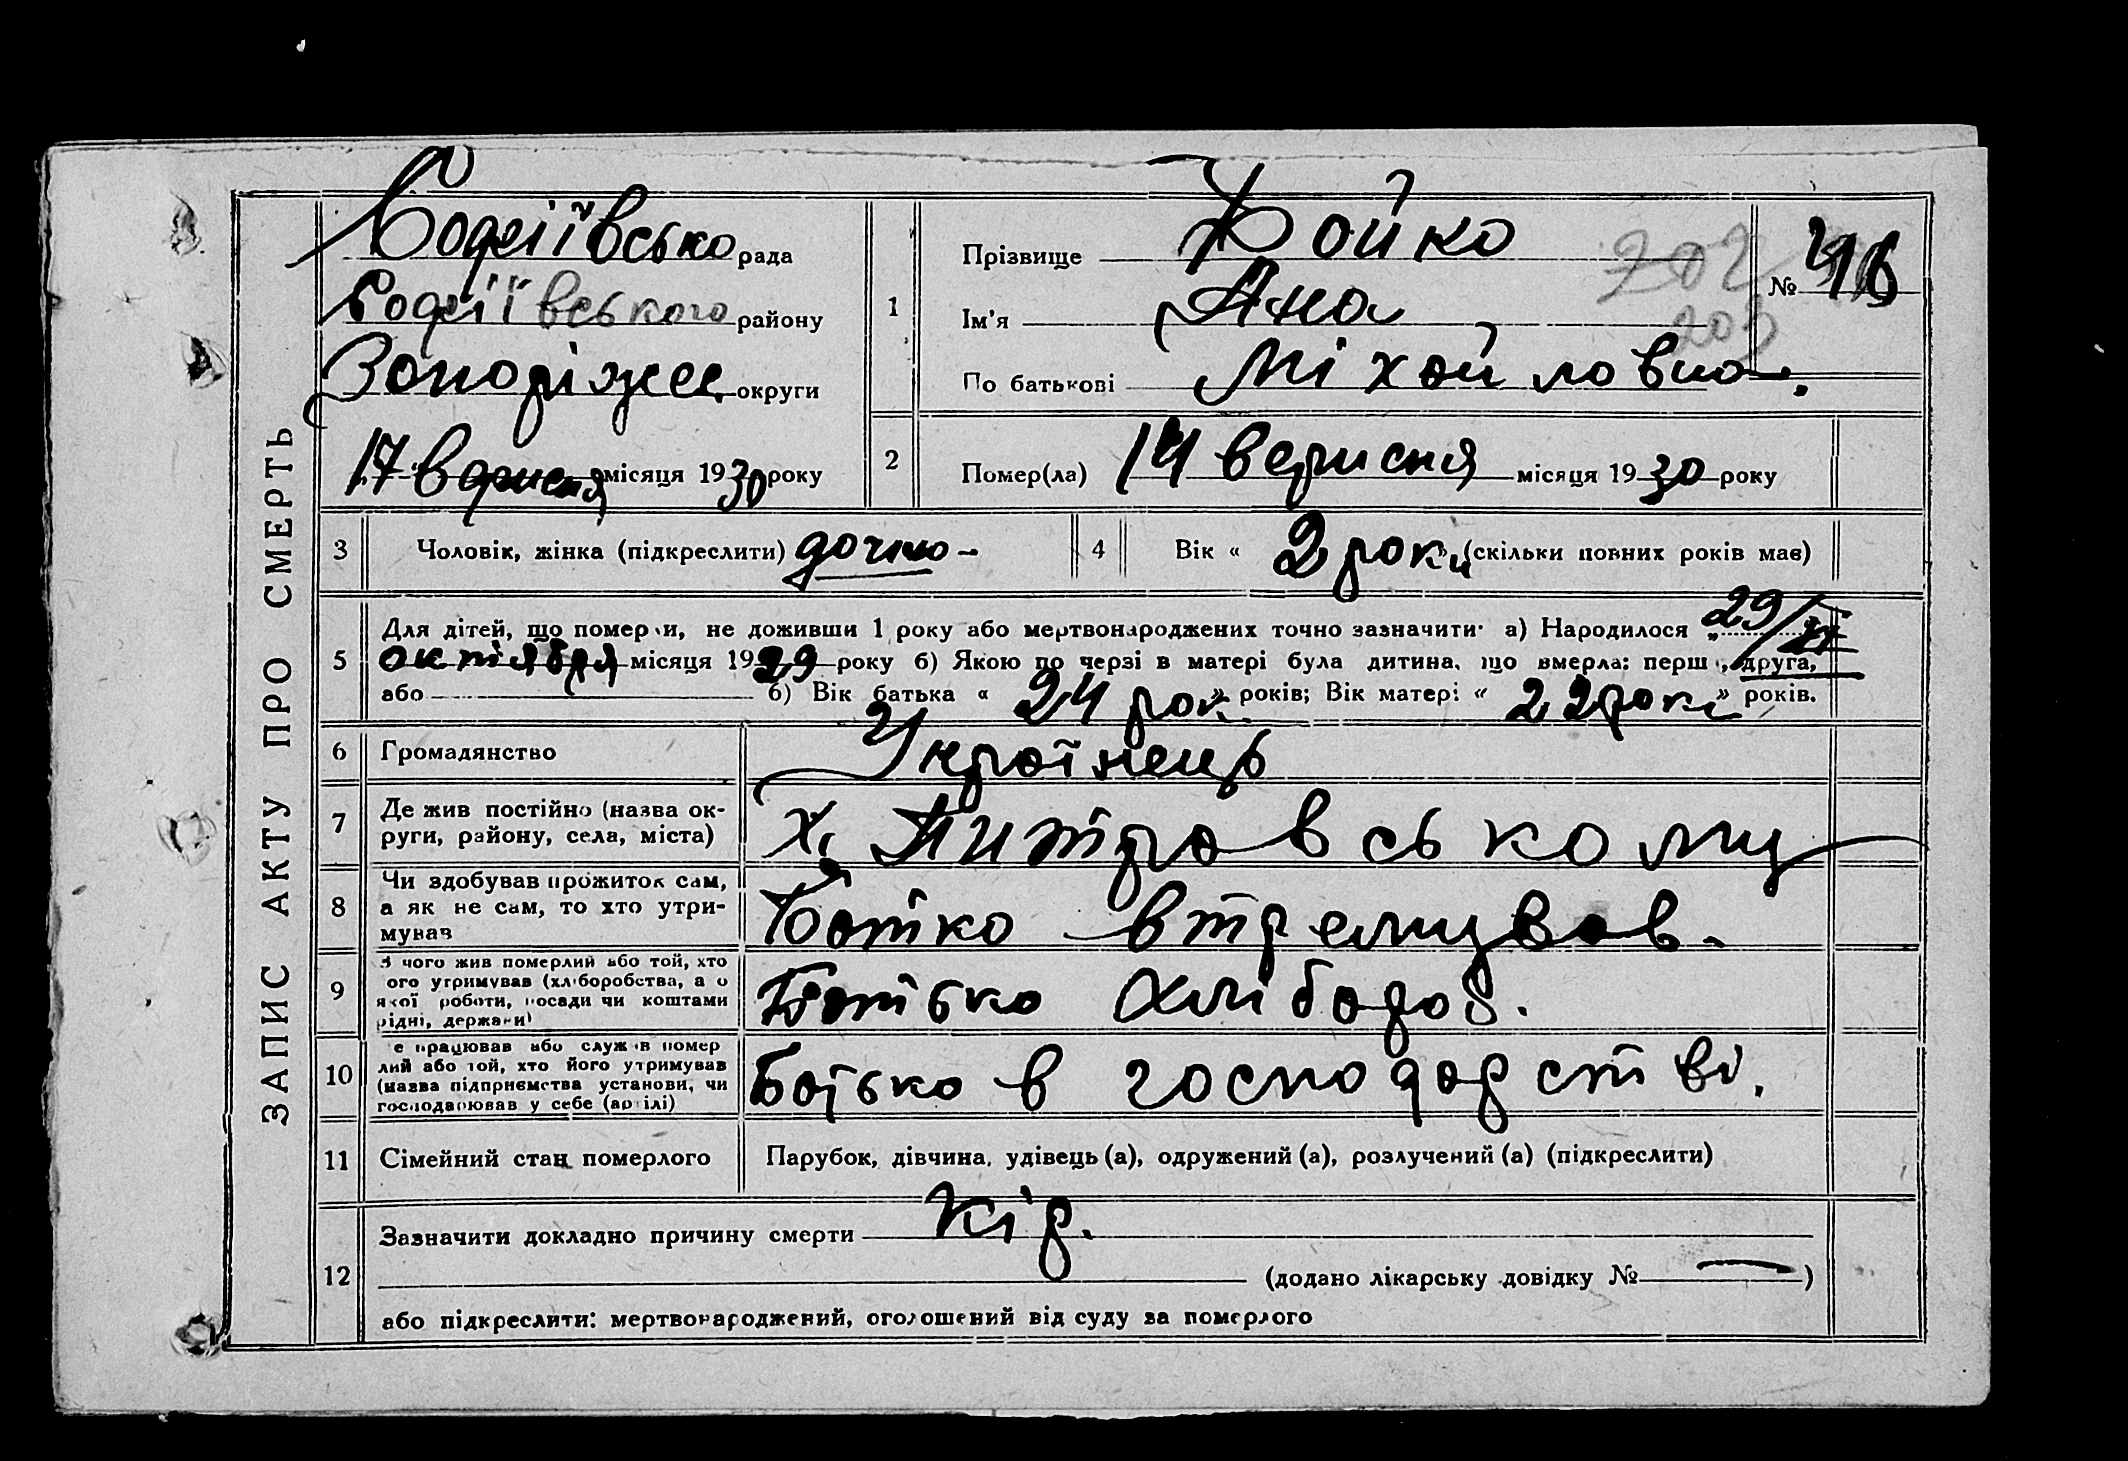 ЗАПИС АКТУ ПРО СМЕРТЬ
Софіївсько рада
Софіївського району
Запоріжец округи
17 вересня місяця 1930 року
1
Прізвище Бойко
Ім'я Ана
По батькові Міхайловна.
№ 46
202
203
2
Помер(ла) 14 верисня місяця 1930 року
3 Чоловік, жінка (підкреслити) дочка -
4 Вік « 2 роки » (скільки повних років мав)
5 Для дітей, що померли, не доживши 1 року або мертвонароджених точно зазначити: а) Народилося „ 29/XI
октября місяця 1929 року б) Якою по черзі в матері була дитина, що вмерла: перша, друга,
або б) Вік батька « 24 рок » років; Вік матері « 22 роки » років.
6 Громадянство Українець
7 Де жив постійно (назва округи, району, села, міста) х. Дмитровському
8 Чи здобував прожиток сам, а як не сам, то хто утримував Батко втремував.
9 З чого жив померлий або той, хто його утримував (хліборобства, а о якої роботи, посади чи коштами рідні, держави) Батько хлібороб.
10 Де працював або служив померлий або той, хто його утримував (назва підприємства установи, чи господарював у себе (артілі) Батько в господарстві.
11 Сімейний стан померлого Парубок, дівчина, удівець (а), одружений (а), розлучений (а) (підкреслити)
12 Зазначити докладно причину смерти Кір.
(додано лікарську довідку № — )
або підкреслити: мертвонароджений, оголошений від суду за померлого